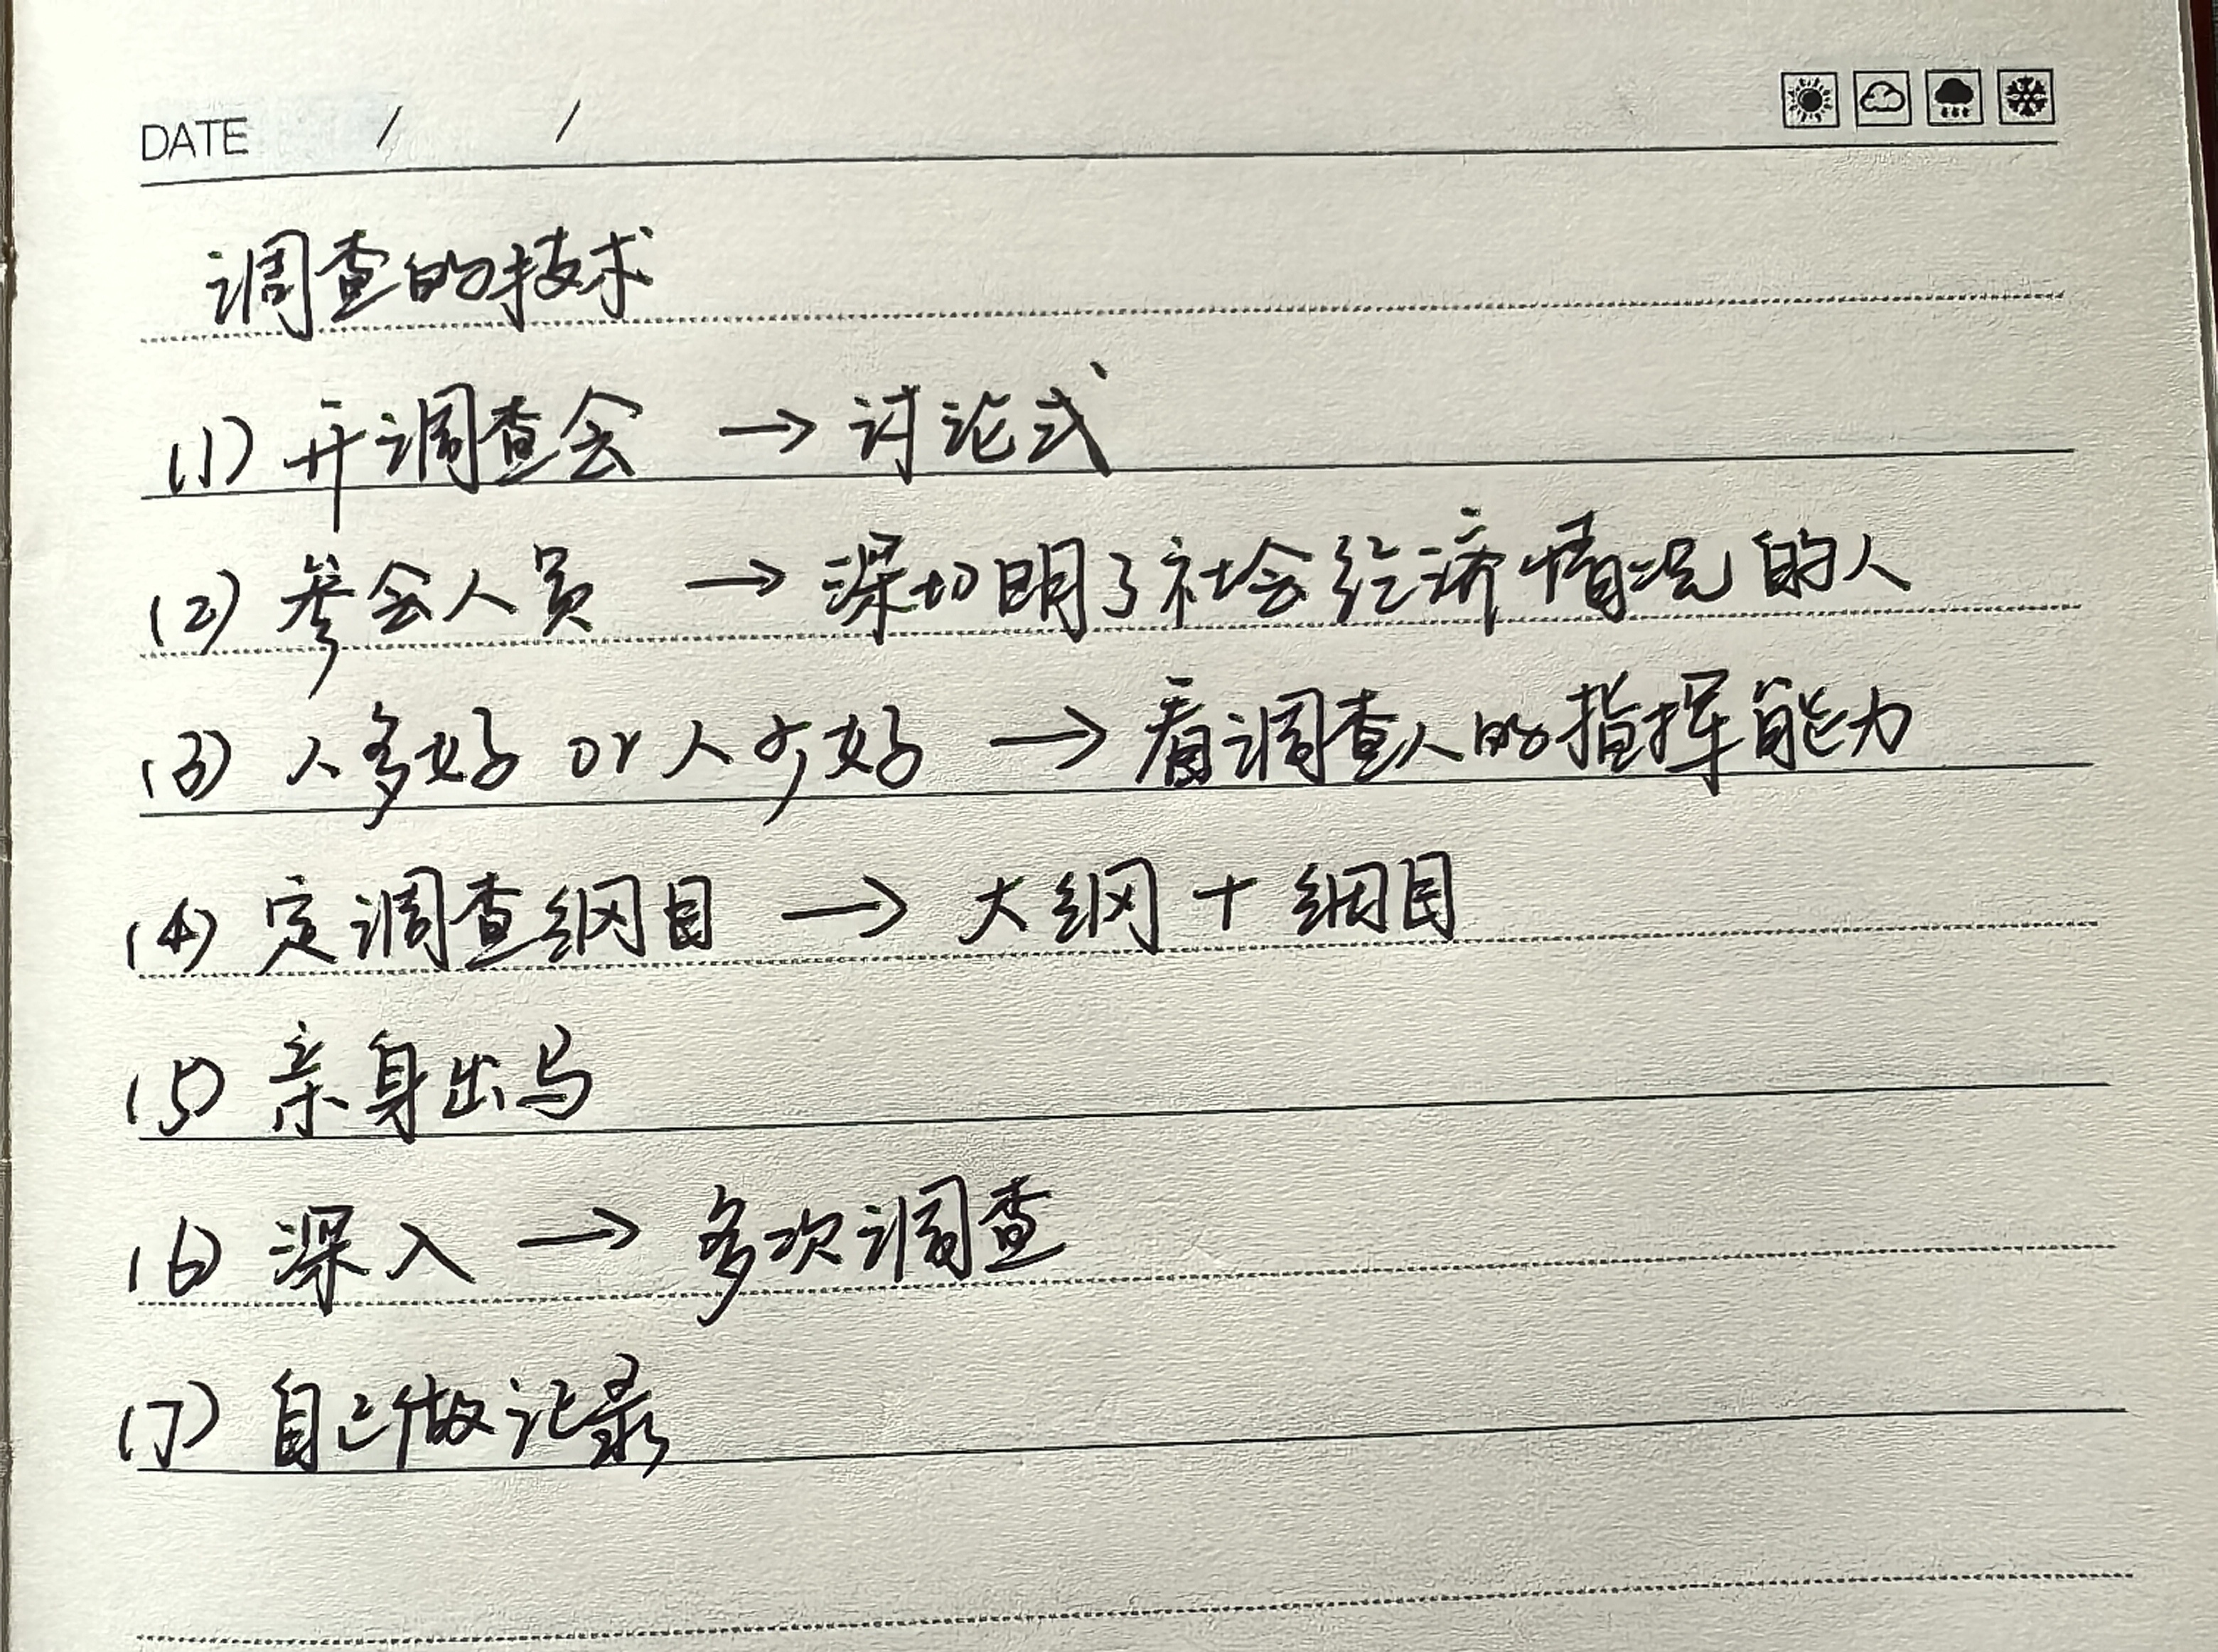 DATE / /
调查的技术
(1) 开调查会 → 讨论式
(2) 参会人员 → 深切明了社会经济情况的人
(3) 人多好 or 人少好 → 看调查人的指挥能力
(4) 定调查纲目 → 大纲 + 细目
(5) 亲身出马
(6) 深入 → 多次调查
(7) 自己做记录